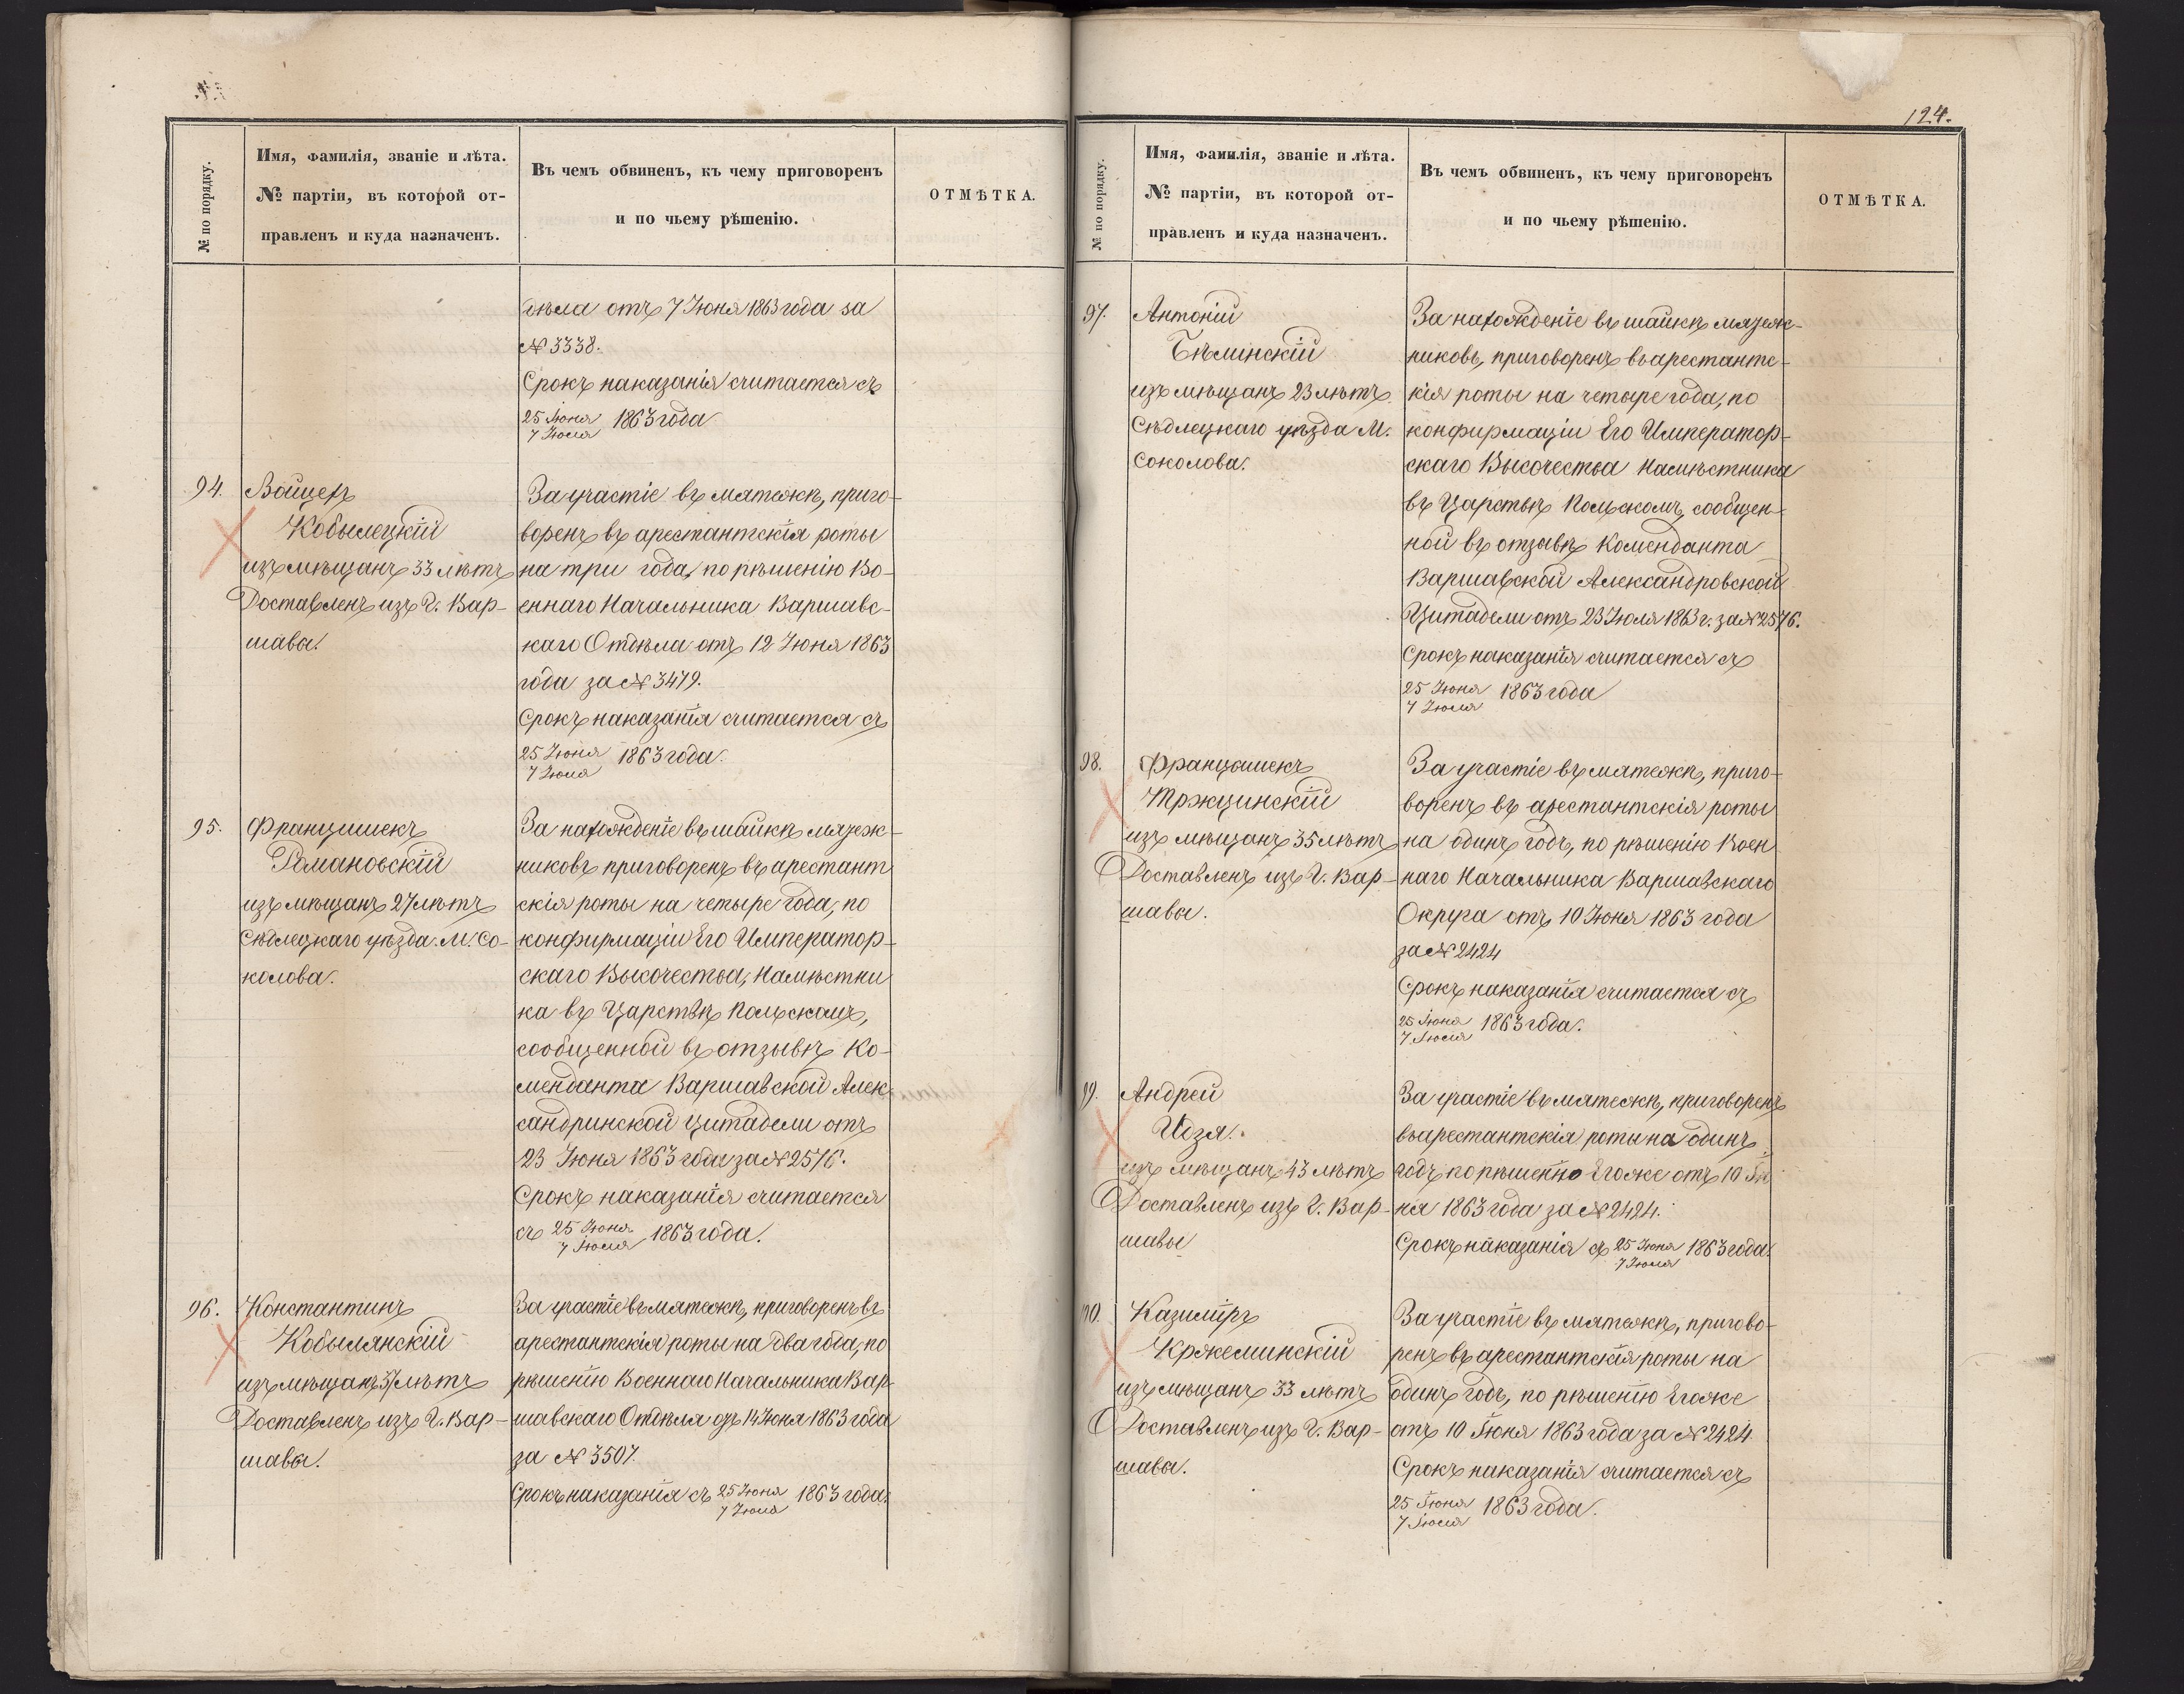 № по порядку.
Имя, фамилія, званіе и лѣта.
№ партіи, въ которой от-
правленъ и куда назначенъ.
Въ чемъ обвиненъ, къ чему приговоренъ
и по чьему рѣшенію.
ОТМѢТКА.
дѣла отъ 7 Июня 1863 года за
№ 3338.
Срокъ наказанія считается съ
25 Июня
7 Июля 1863 года
94.
Войцехъ
Кобылецкій
изъ мѣщанъ 33 лѣтъ
Доставленъ изъ г. Вар-
шавы.
За участіе въ мятежѣ, приго-
воренъ въ арестантскія роты
на три года, по рѣшенію Во-
еннаго Начальника Варшавс-
каго Отдѣла отъ 12 Июня 1863
года за № 3479.
Срокъ наказанія считается съ
25 Июня
7 Июля 1863 года.
95.
Францишекъ
Романовскій
изъ мѣщанъ 27 лѣтъ
Сѣдлецкаго уѣзда. М. Со-
колова.
За нахожденіе въ шайкѣ мятеж-
никовъ приговоренъ въ арестант
скія роты на четыре года, по
конфирмаціи Его Император-
скаго Высочества, Намѣстни
ка въ Царствѣ Польскомъ,
сообщенной въ отзывѣ Ко-
менданта Варшавской Алек-
сандринской Цитадели отъ
23 Июня 1863 года за № 2576.
Срокъ наказанія считается
съ 25 Июня
7 Июля 1863 года.
96.
Константинъ
Кобылянскій
изъ мѣщанъ 37 лѣтъ
Доставленъ изъ г. Вар-
шавы.
За участіе въ мятежѣ, приговоренъ въ
арестантскія роты на два года, по
рѣшенію Военнаго Начальника Вар-
шавскаго Отдѣла отъ 14 Июня 1863 года
за № 3507.
Срокъ наказанія съ 25 Июня
7 Июля 1863 года.
124.
№ по порядку.
Имя, фамилія, званіе и лѣта.
№ партіи, въ которой от-
правленъ и куда назначенъ.
Въ чемъ обвиненъ, къ чему приговоренъ
и по чьему рѣшенію.
ОТМѢТКА.
97.
Антоній
Бѣлинскій
изъ мѣщанъ 23 лѣтъ
Сѣдлецкаго уѣзда М.
Соколова.
За нахожденіе въ шайкѣ мятеж-
никовъ, приговоренъ въ арестантс-
кія роты на четыре года, по
конфирмаціи Его Император-
скаго Высочества Намѣстника
въ Царствѣ Польскомъ, сообщен-
ной въ отзывѣ Коменданта
Варшавской Александровской
Цитадели отъ 23 Июля 1863 г. за № 2576.
Срокъ наказанія считается съ
25 Июня
7 Июля 1863 года
98.
Францишекъ
Тржцинскій
изъ мѣщанъ 35 лѣтъ
Доставленъ изъ г. Вар-
шавы.
За участіе въ мятежѣ, приго-
воренъ въ арестантскія роты
на одинъ годъ, по рѣшенію Воен
наго Начальника Варшавскаго
Округа отъ 10 Июня 1863 года
за № 2424
Срокъ наказанія считается съ
25 Іюня
7 Іюля 1863 года.
99.
Андрей
Идзя.
изъ мѣщанъ 43 лѣтъ
Доставленъ изъ г. Вар-
шавы
За участіе въ мятежѣ, приговоренъ
въ арестантскія роты на одинъ
годъ по рѣшенію Его же отъ 10 Ію
ня 1863 года за № 2424.
Срокъ наказанія съ 25 Июня
7 Июля 1863 года.
100.
Казиміръ
Кржеминскій
изъ мѣщанъ 33 лѣтъ
Доставленъ изъ г. Вар-
шавы.
За участіе въ мятежѣ, пригово-
ренъ въ арестантскія роты на
одинъ годъ, по рѣшенію Его же
отъ 10 Іюня 1863 года за № 2424.
Срокъ наказанія считается съ
25 Іюня
7 Іюля 1863 года.